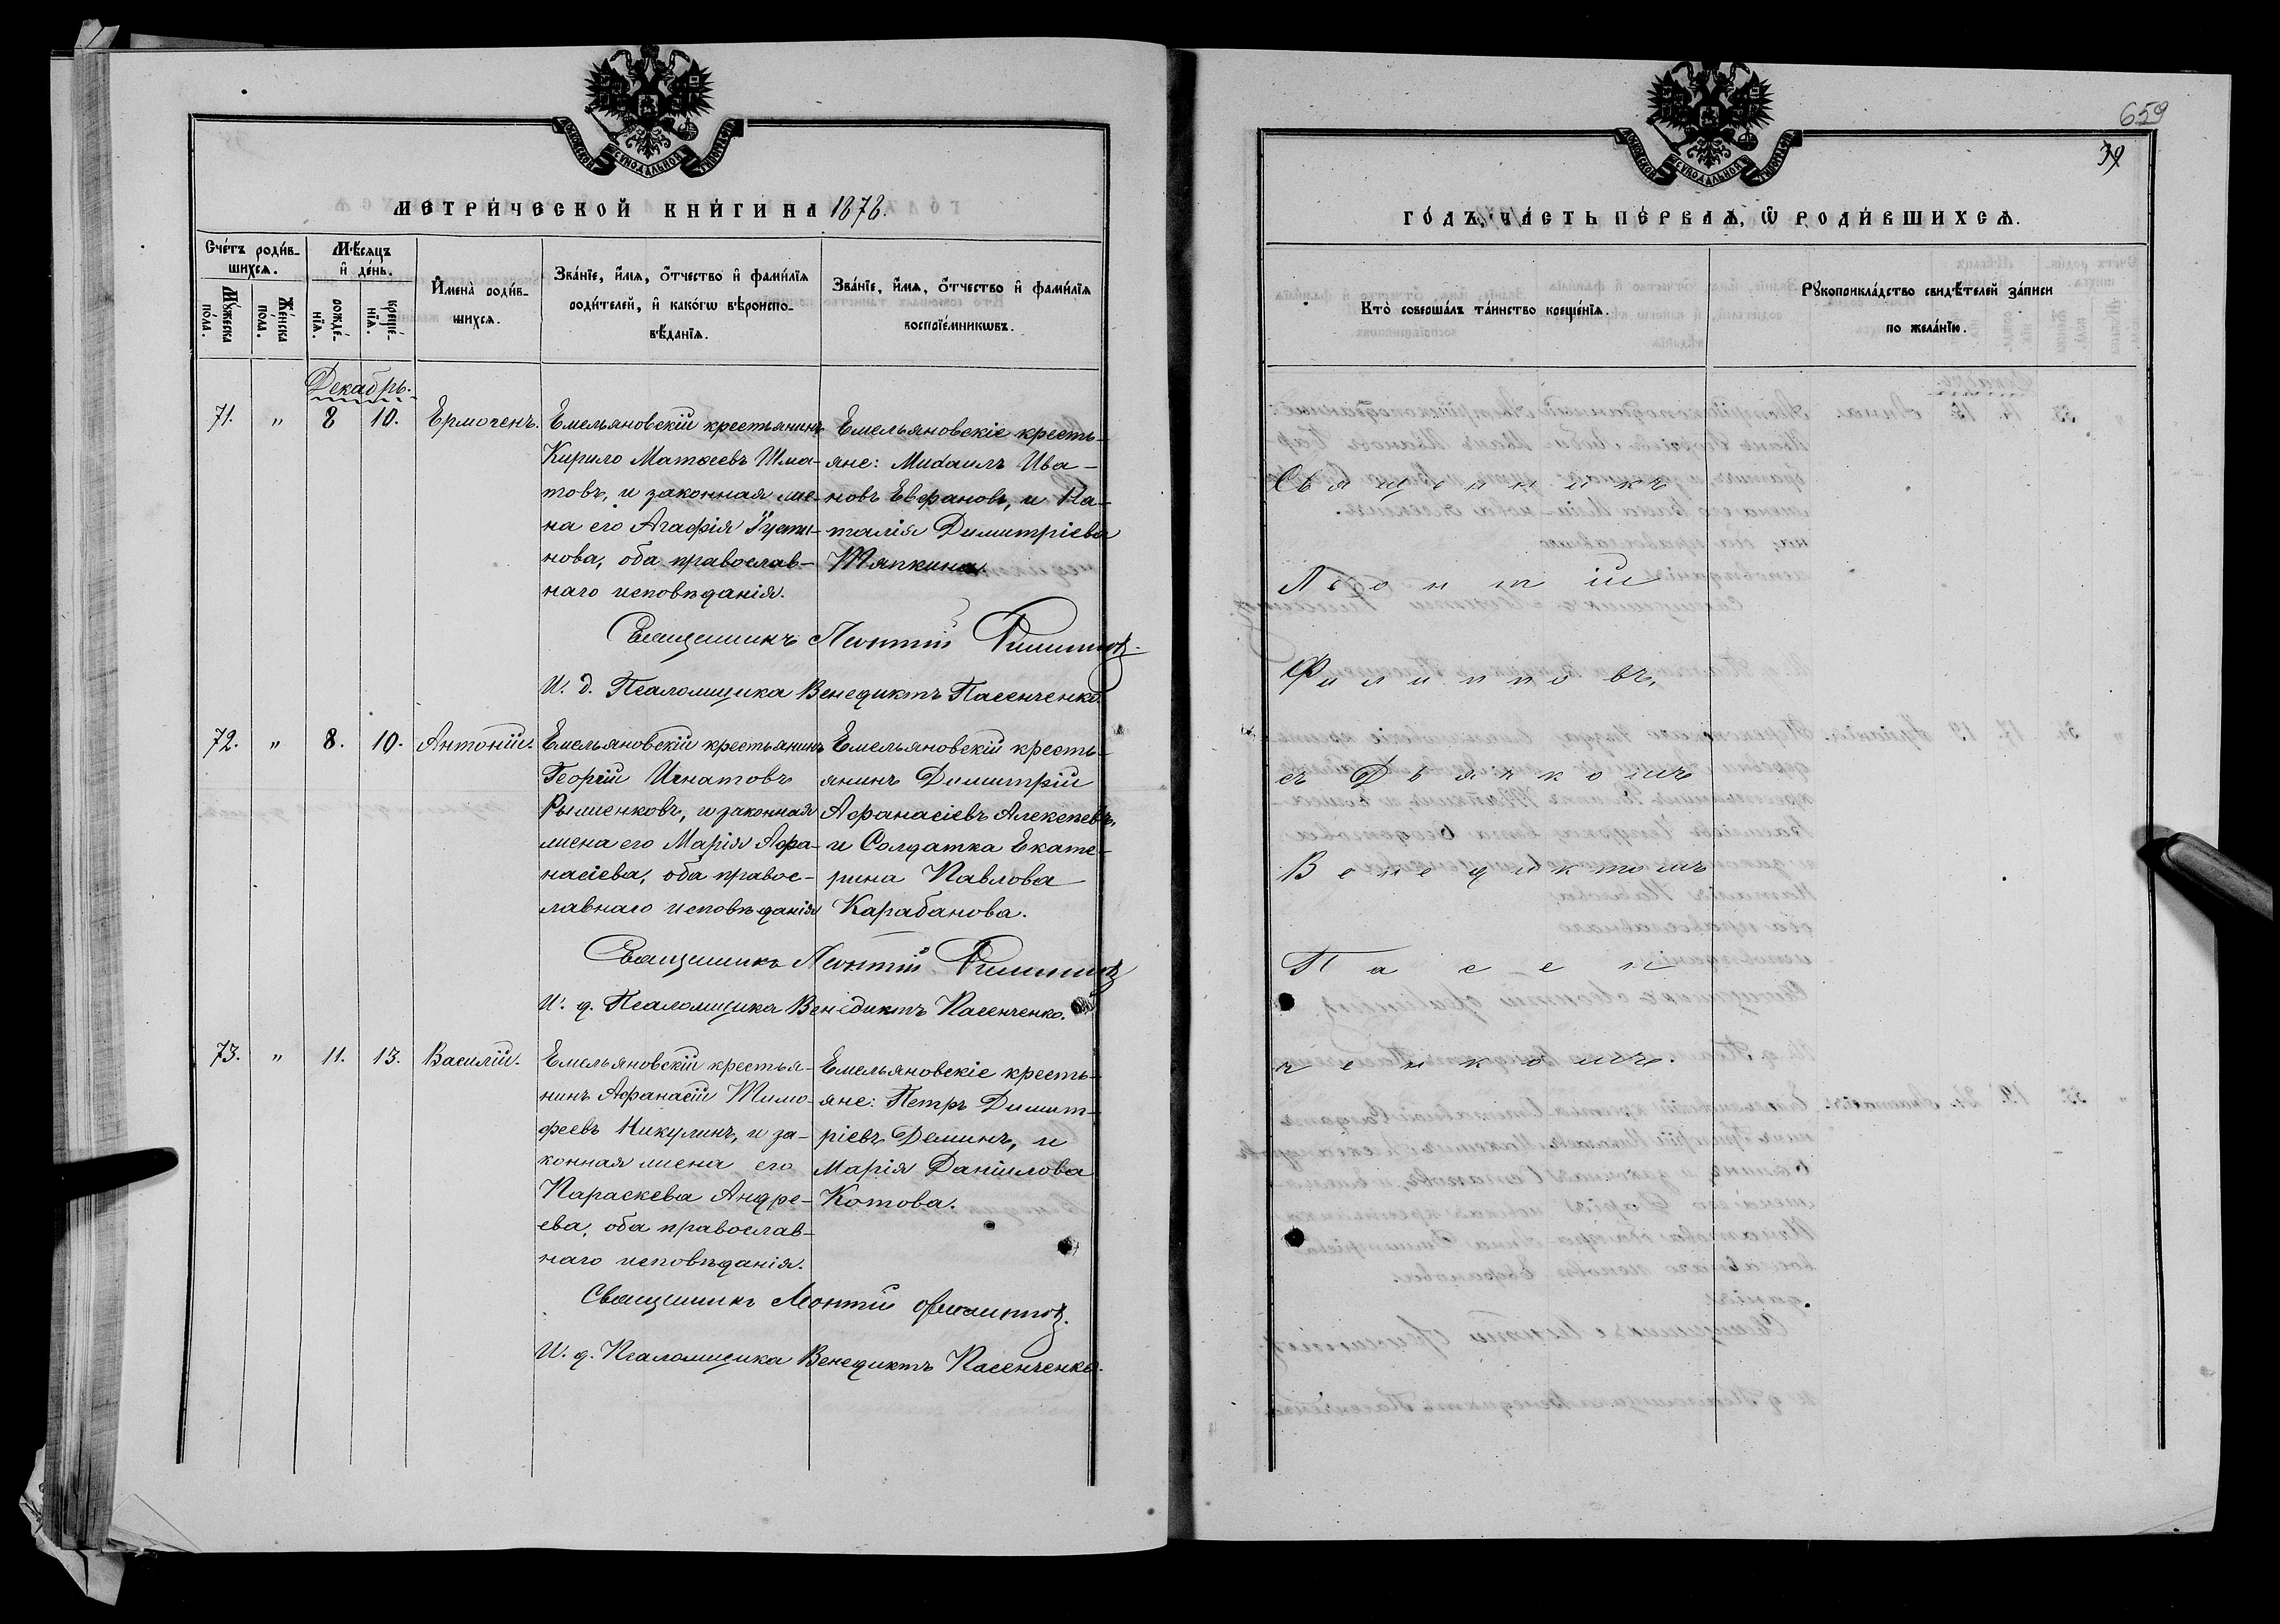 МОСКОВСКОЙ СУНОДАЛЬНОЙ ТИПОГРАФІИ
МЕТРИ́ЧЕСКОЙ КНИ́ГИ НА 1878.
Сче́тъ роди́в-
шихсѧ.
Мꙋжеска по́ла.
Же́нска по́ла.
Мѣ́сѧцъ
и҆ де́нь.
рожде́-
нїѧ.
креще́-
нїѧ.
И҆мена̀ роди́в-
шихсѧ.
Зва́нїе, и҆́мѧ, ѻ҆́тчество и҆ фами́лїѧ
роди́телей, и҆ како́гѡ вѣроиспо-
вѣ́данїѧ.
Зва́нїе, и҆́мѧ, ѻ҆́тчество и҆ фами́лїѧ
воспрїе́мникѡвъ.
Декабрь.
71. " 8 10. Ермогенъ.
Емельяновскій крестьянинъ
Кирило Матѳеевъ Шма-
товъ, и законная же-
на его Агафія Іусти-
нова, оба православ-
наго исповѣданія.
Емельяновскіе кресть-
яне: Михаилъ Ива-
новъ Евфановъ, и На-
талія Димитріева
Тяпкина.
Священникъ Леонтій Филипповъ.
И. д. Псаломщика Венедиктъ Пасенченко.
72. " 8. 10. Антоній.
Емельяновскій крестьянинъ
Георгій Игнатовъ
Рыженковъ, и законная
жена его Марія Афа-
насіева, оба правос-
лавнаго исповѣданія
Емельяновскій кресть-
янинъ Димитрій
Афанасіевъ Алексѣевъ,
и Солдатка Екате-
рина Павлова
Карабанова.
Священникъ Леонтій Филипповъ
И. д. Псаломщика Венедиктъ Пасенченко.
73. " 11. 13. Василій.
Емельяновскій крестья-
нинъ Афанасій Тимо-
феевъ Никулинъ, и за-
конная жена его
Параскева Андре-
ева, оба православ-
наго исповѣданія.
Емельяновскіе кресть-
яне: Петръ Димит-
ріевъ Деминъ, и
Марія Даніилова
Котова.
Священникъ Леонтій Филипповъ.
И. д. Псаломщика Венедиктъ Пасенченко.
659
39
МОСКОВСКОЙ СУНОДАЛЬНОЙ ТИПОГРАФІИ
ГО́ДЪ, ЧА́СТЬ ПЕ́РВАѦ, Ѡ҆ РОДИ́ВШИХСѦ.
Кто̀ соверша́лъ та́инство креще́нїѧ.
Рꙋкоприкла́дство свидѣ́телей за́писи
по жела́нїю.
Священникъ
Леонтій
Филипповъ,
съ Дьячкомъ
Венедиктомъ
Пасен
ченкомъ.